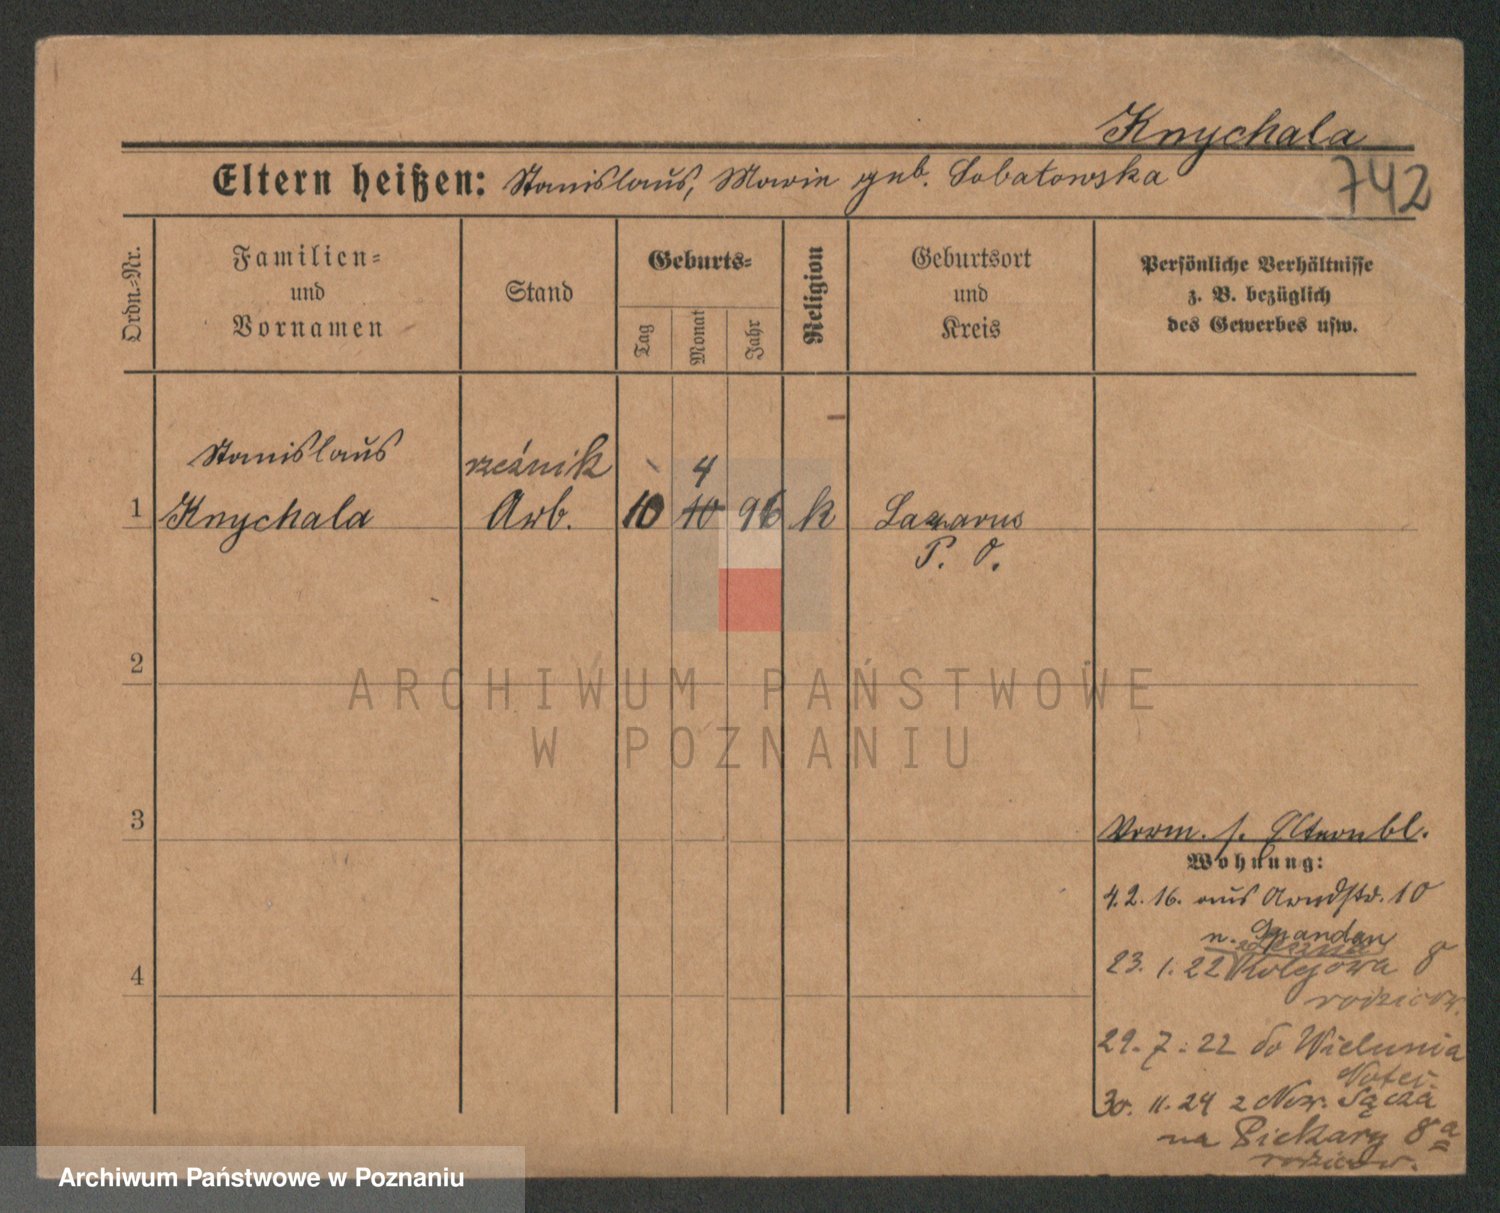 Knychala
Eltern heißen: Stanislaus, Marie geb. Sobatowska
742
Ordn.-Nr.
Familien-
und
Vornamen
Stand
Geburts-
Tag
Monat
Jahr
Religion
Geburtsort
und
Kreis
Persönliche Verhältnisse
z. B. bezüglich
des Gewerbes usw.
Stanislaus rzeźnik 4
1 Knychala Arb. 10 10 96 k Lazarus
P. O.
2
ARCHIWUM PAŃSTWOWE
W POZNANIU
3
Verm. s. Elternbl.
Wohnung:
4. 2. 16. aus Arndtstr. 10
n. Spandau
4
23. 1. 22 Kolejowa 8
rodziców.
29. 7. 22 do Wielunia
Noteć.
30. 11. 24 z Now. Sącza
na Piekary 8a
rodziców.
Archiwum Państwowe w Poznaniu